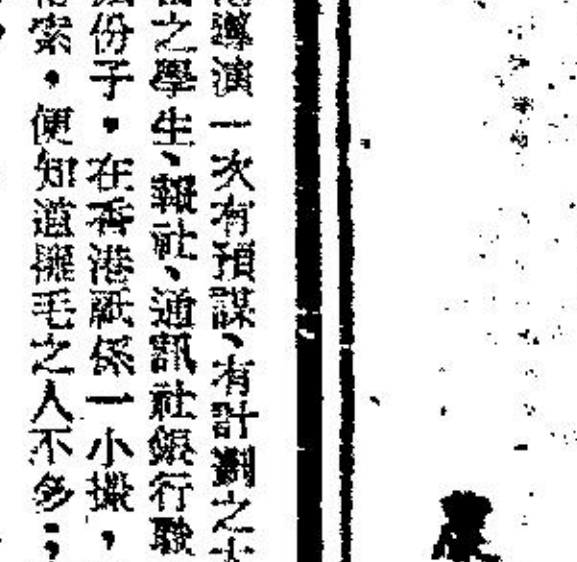 導演一次有預謀、有計劃之
之學生、報社、通訊社銀行職
份子，在香港祇係一小撮，
索，便知道擁毛之人不多；